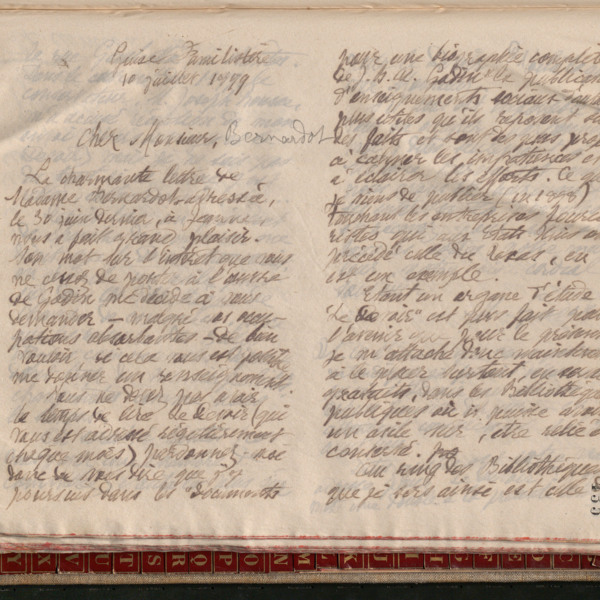 Guise Familistère
10 juillet 1899
Cher Monsieur, Bernardot
La charmante lettre de
Madame Bernardot adressée à,
le 30 juin dernier, à
nous a fait grand plaisir.
Son mot sur l'intérêt que vous
ne cessez de porter à l'œuvre
de Godin me décide à vous
demander – malgré vos occu-
pations absorbantes – de bien
vouloir si cela vous est possible
me donner un renseignement.
Vous ne devez pas avoir
le temps de lire le Devoir (qui
vous est adressé régulièrement
chaque mois) pardonnez-moi
donc de vous dire que j'y
poursuis dans les "Documents
pour une biographie complète
de J. B. A. Godin" la publication
d'enseignements sociaux
plus utiles qu'ils reposent sur
des faits et sont des plus propres
à calmer les impatiences et
à éclairer les efforts. Ce que
je viens de publier (en 1898)
touchant les entreprises fourié-
ristes qui aux Etats Unis ont
précédé celle du Texas, en
est un exemple.
Etant un organe d'étude
"Le Devoir" est plus fait pour
l'avenir que pour le présent
je m'attache donc maintenant
à le placer surtout, en
gratuits, dans les Bibliothèques
publiques où il puisse avoir
un asile sûr, être relié et
conservé.
Au rang des Bibliothèques
que je vise ainsi est celle